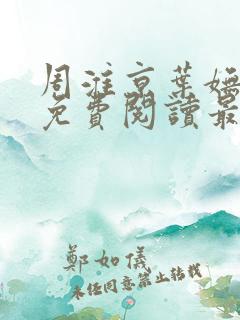 周淮京葉嫵
免費閱讀最
鄭如儀
未经同意禁止转载